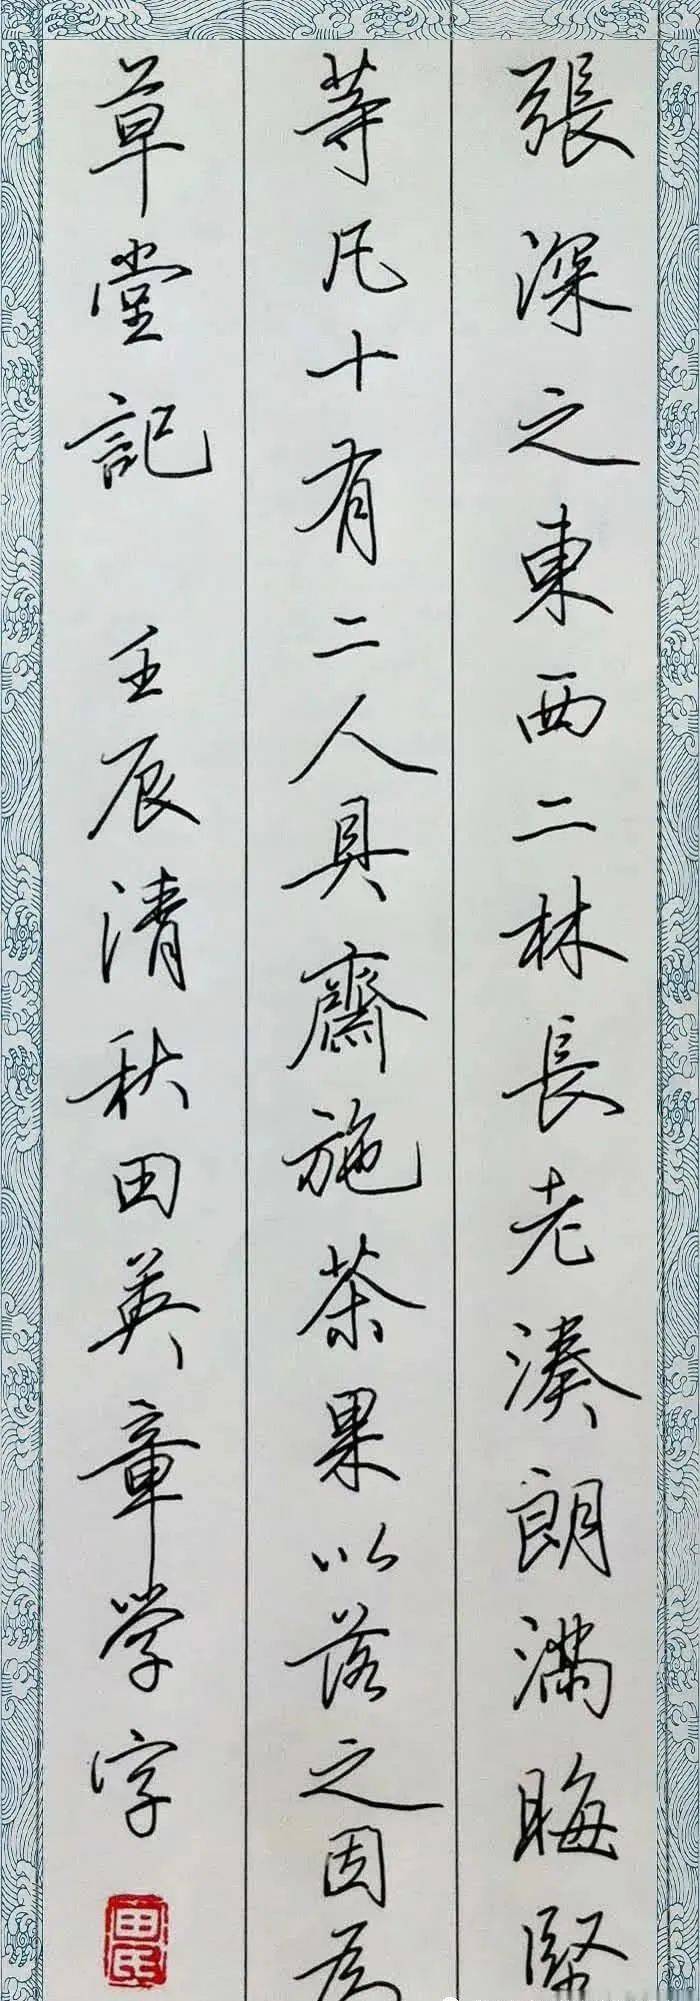 張深之東西二林長老湊朗滿晦堅
等凡十有二人具齋施茶果以落之因為
草堂記 壬辰清秋田英章學字
田氏